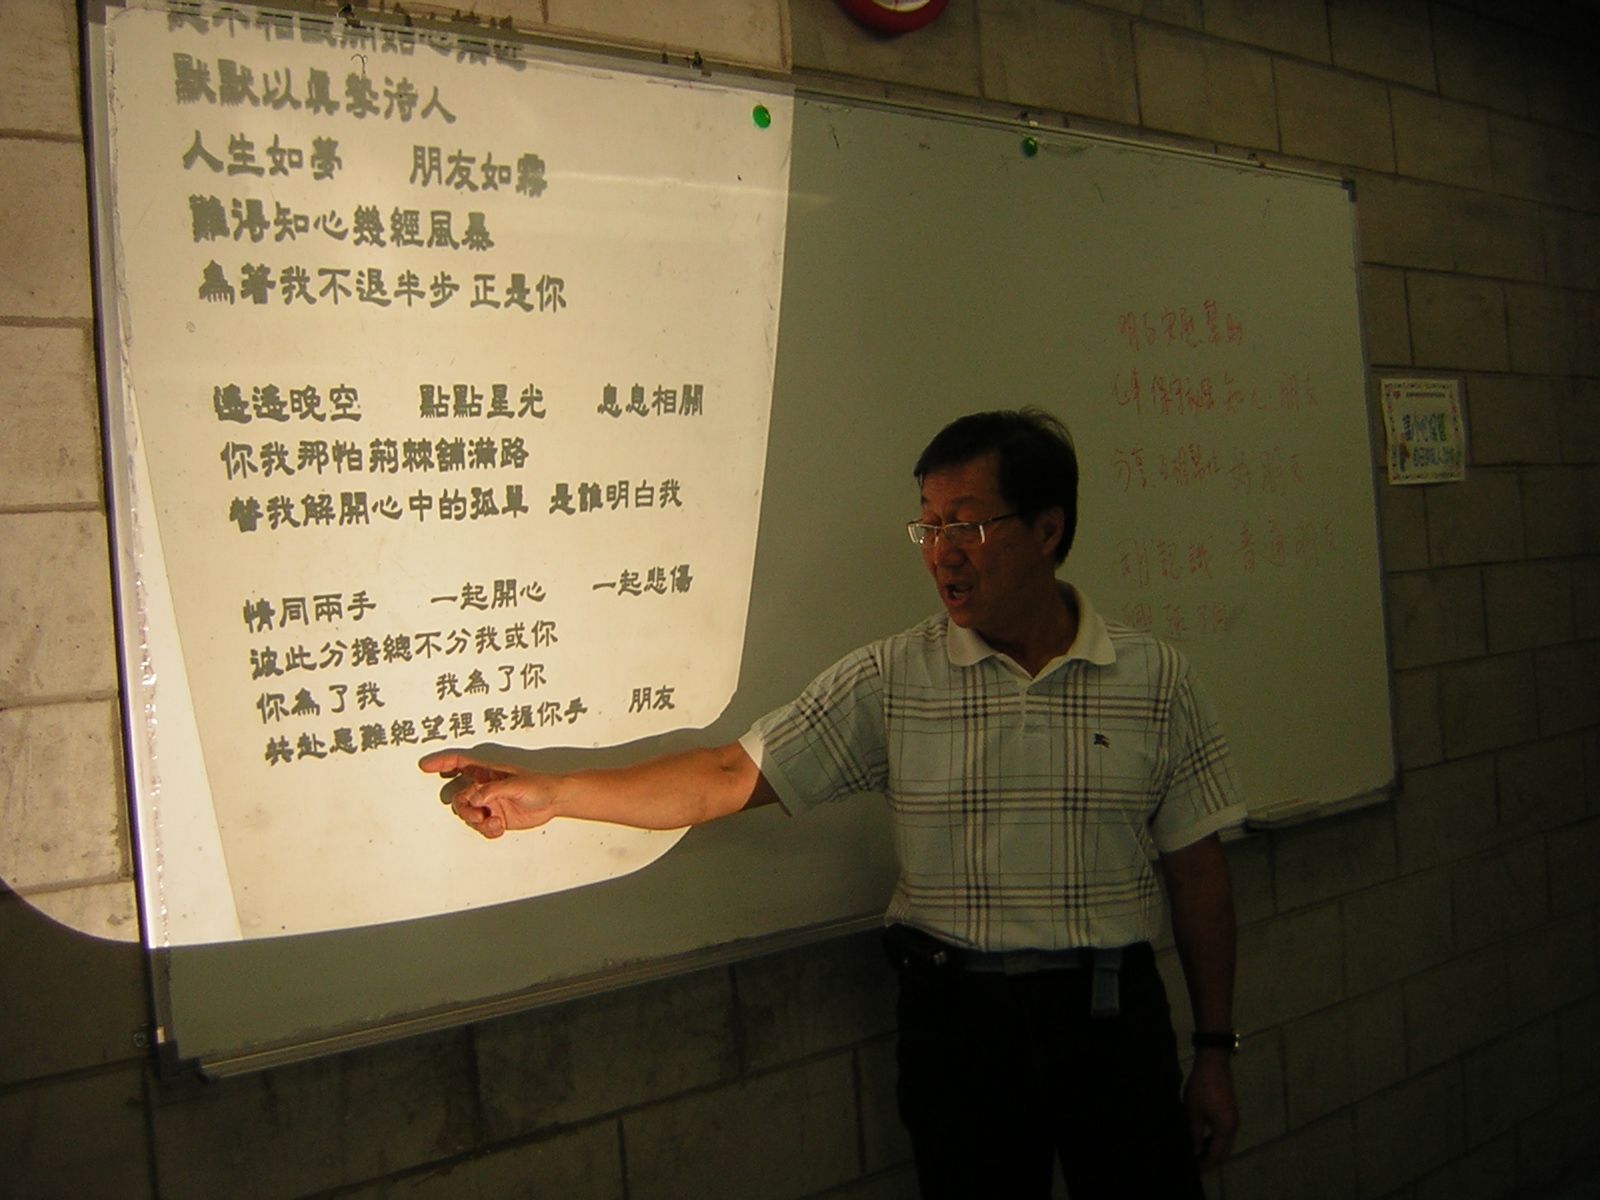 從不相識開始心接近
默默以真摯待人
人生如夢 朋友如霧
難得知心幾經風暴
為著我不退半步 正是你
遙遙晚空 點點星光 息息相關
你我那怕荊棘舖滿路
替我解開心中的孤單 是誰明白我
情同兩手 一起開心 一起悲傷
彼此分擔總不分我或你
你為了我 我為了你
共赴患難絕望裡 緊握你手 朋友
知心 朋友
分享 好朋友
剛認識 普通朋友